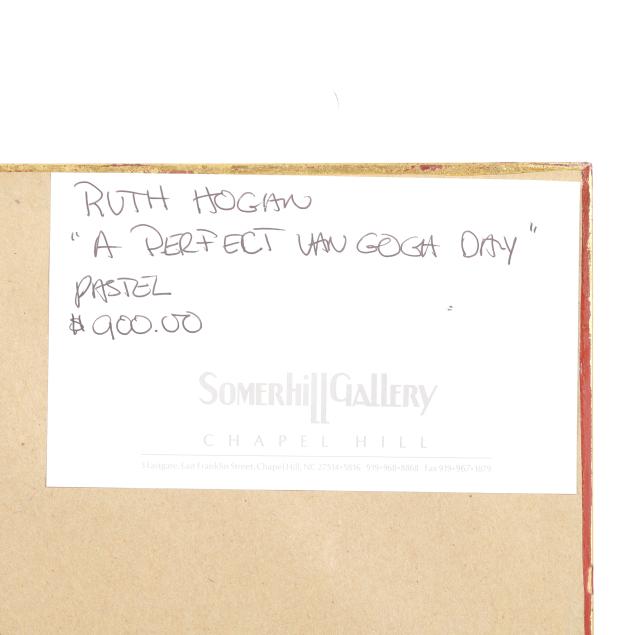 RUTH HOGAN
"A PERFECT VAN GOGH DAY"
PASTEL
$900.00
SOMERHILL GALLERY
CHAPEL HILL
3 Eastgate, East Franklin Street, Chapel Hill, NC 27514•5816 919•968•8868 Fax 919•967•1879